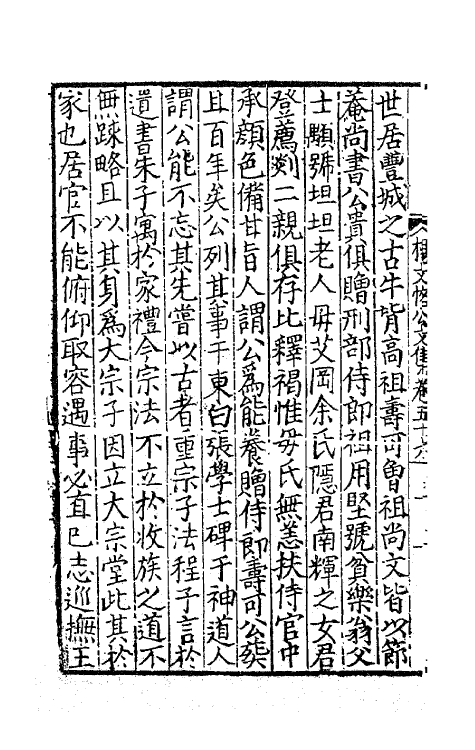 世居豐城之古牛背高祖壽可曾祖尚文皆以節
菴尚書公貴俱贈刑部侍郎祖用堅號貧樂翁父
士顒號坦坦老人母艾岡余氏隱君南輝之女君
登薦剡二親俱存比釋褐惟母氏無恙扶侍官中
承顏色備甘旨人謂公為能養贈侍郎壽可公葬
且百年矣公列其事干東白張學士碑于神道人
謂公能不忘其先嘗以古者重宗子法程子言於
遺書朱子寓於家禮今宗法不立於收族之道不
無疎略且以其身為大宗子因立大宗堂此其於
家也居官不能俯仰取容遇事必直已志巡撫王
楊文恪公文集卷五十六